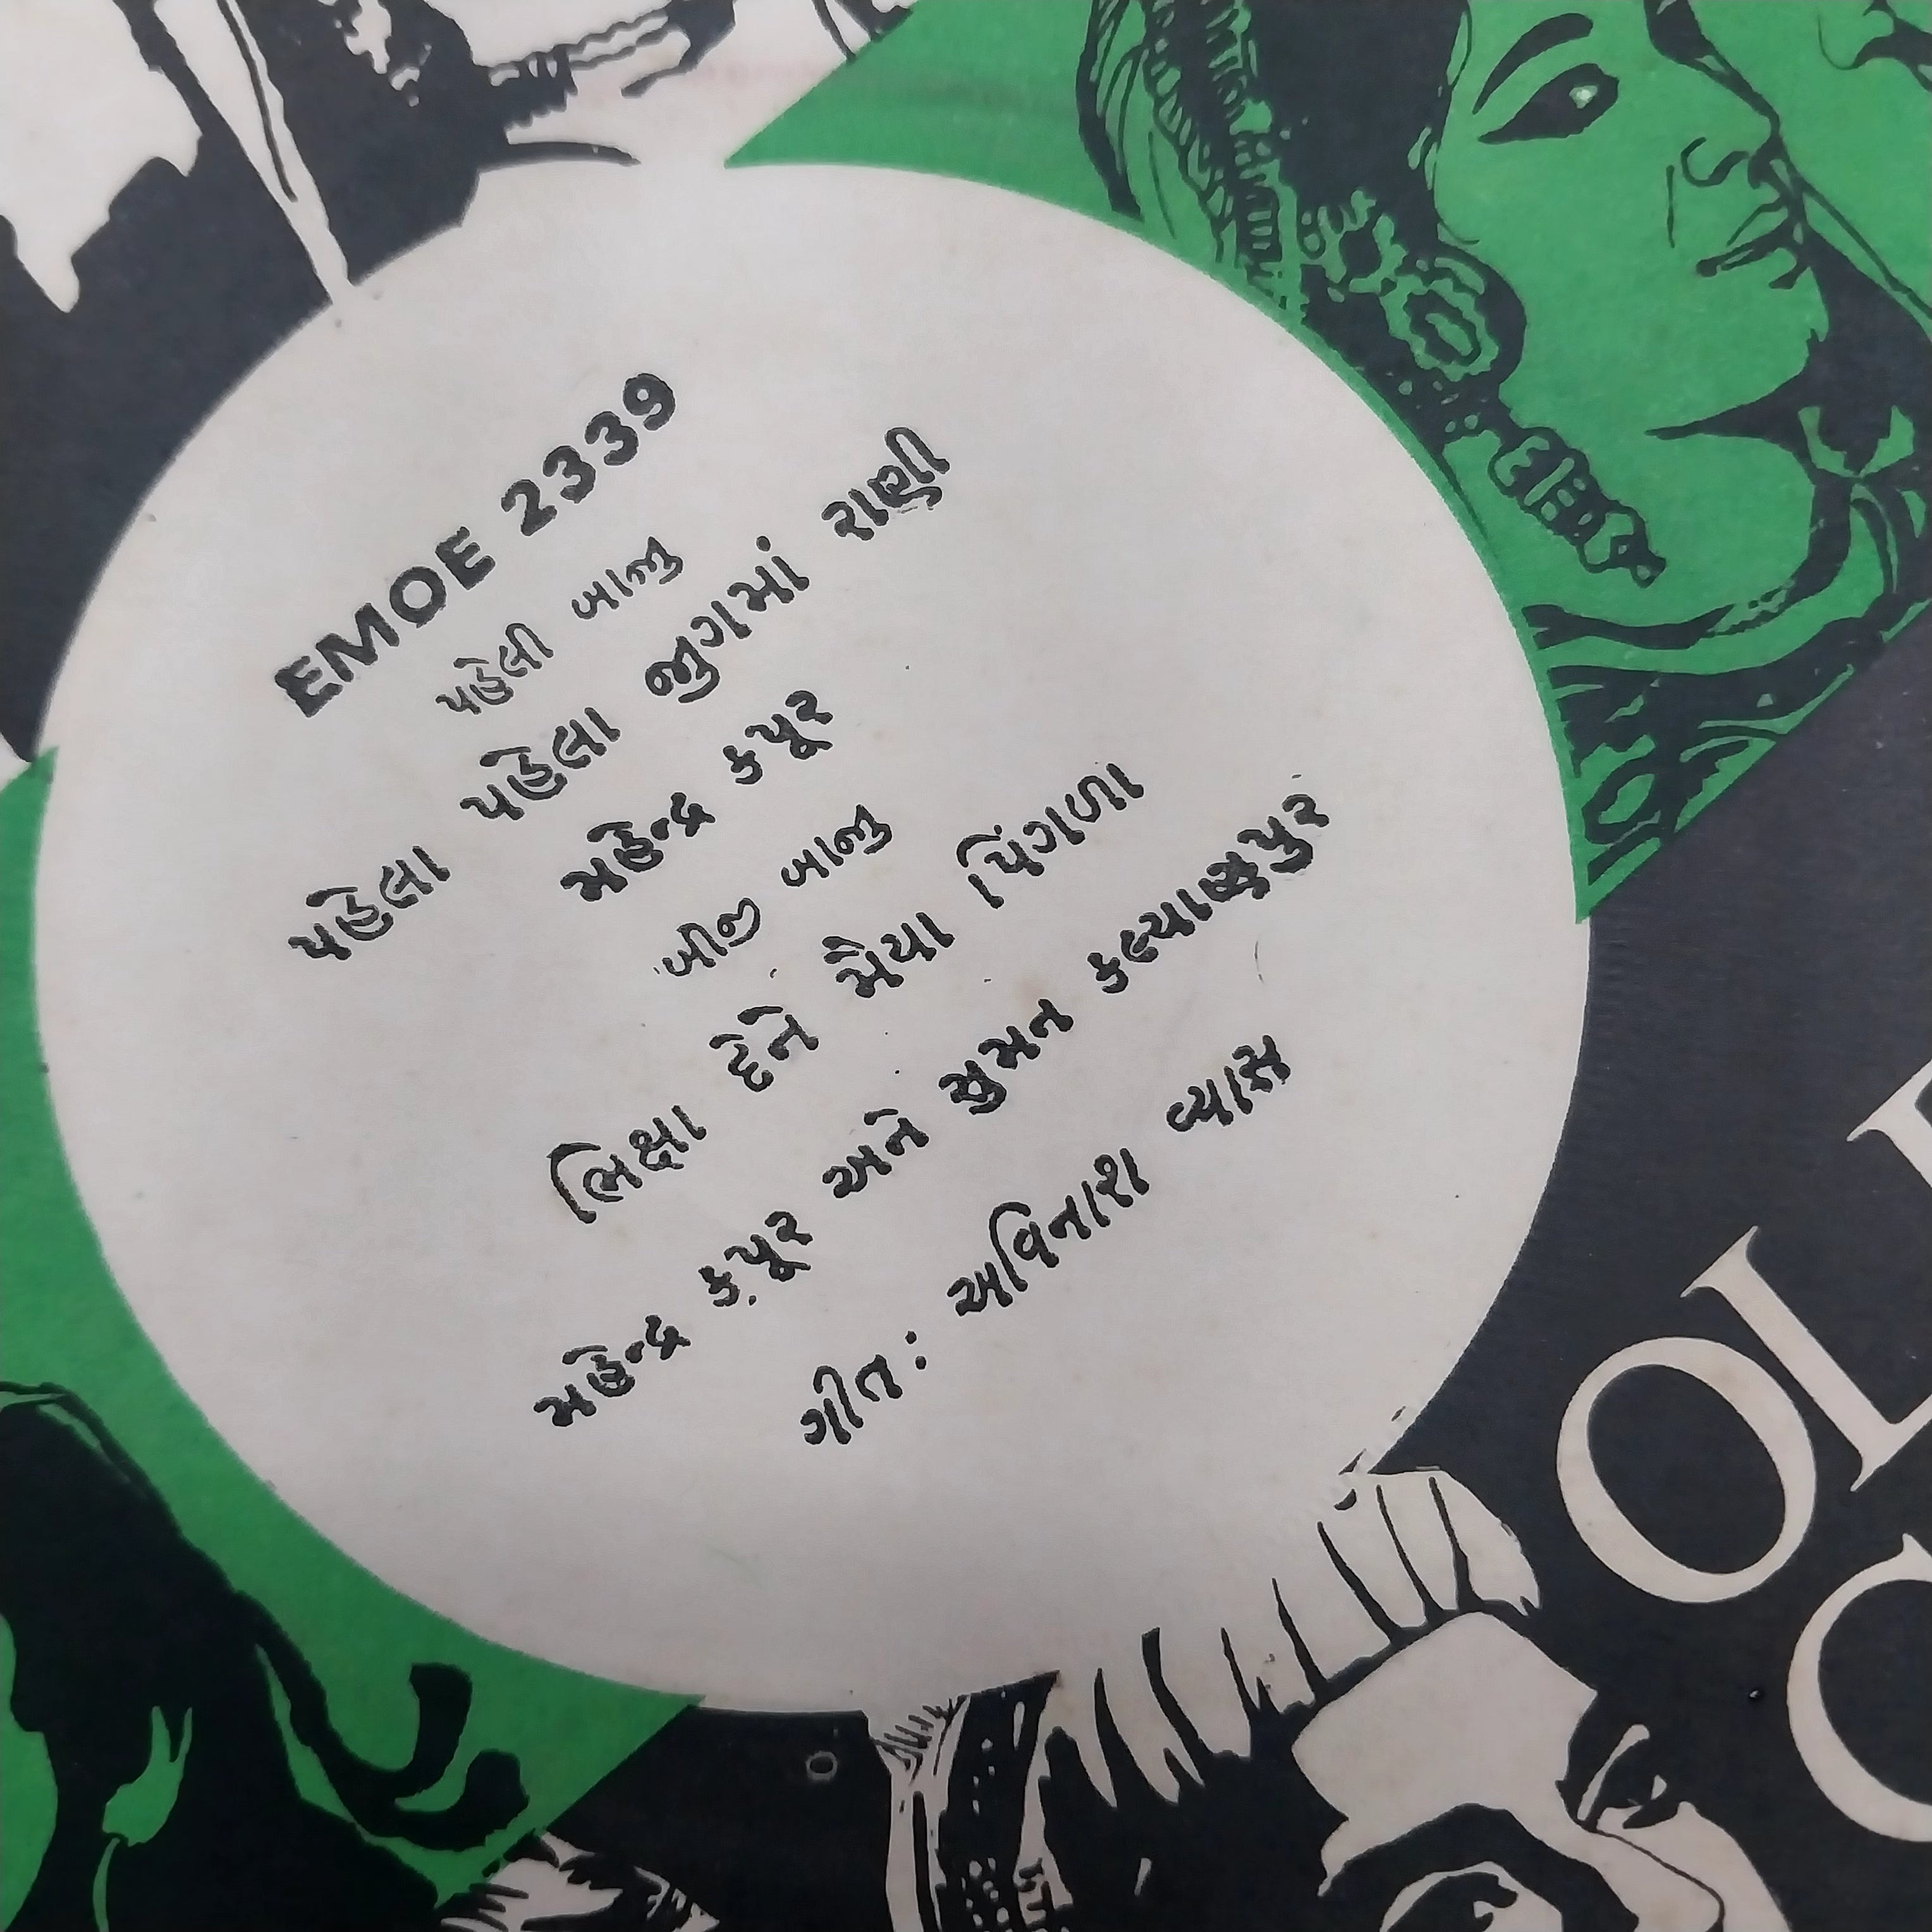 EMOE 2339
પહેલી બાજુ
પહેલા પહેલા જુગમાં રાણી
મહેન્દ્ર કપૂર
બીજી બાજુ
ભિક્ષા દેને મૈયા પિંગળા
મહેન્દ્ર કપૂર અને સુમન કલ્યાણપુર
ગીત: અવિનાશ વ્યાસ